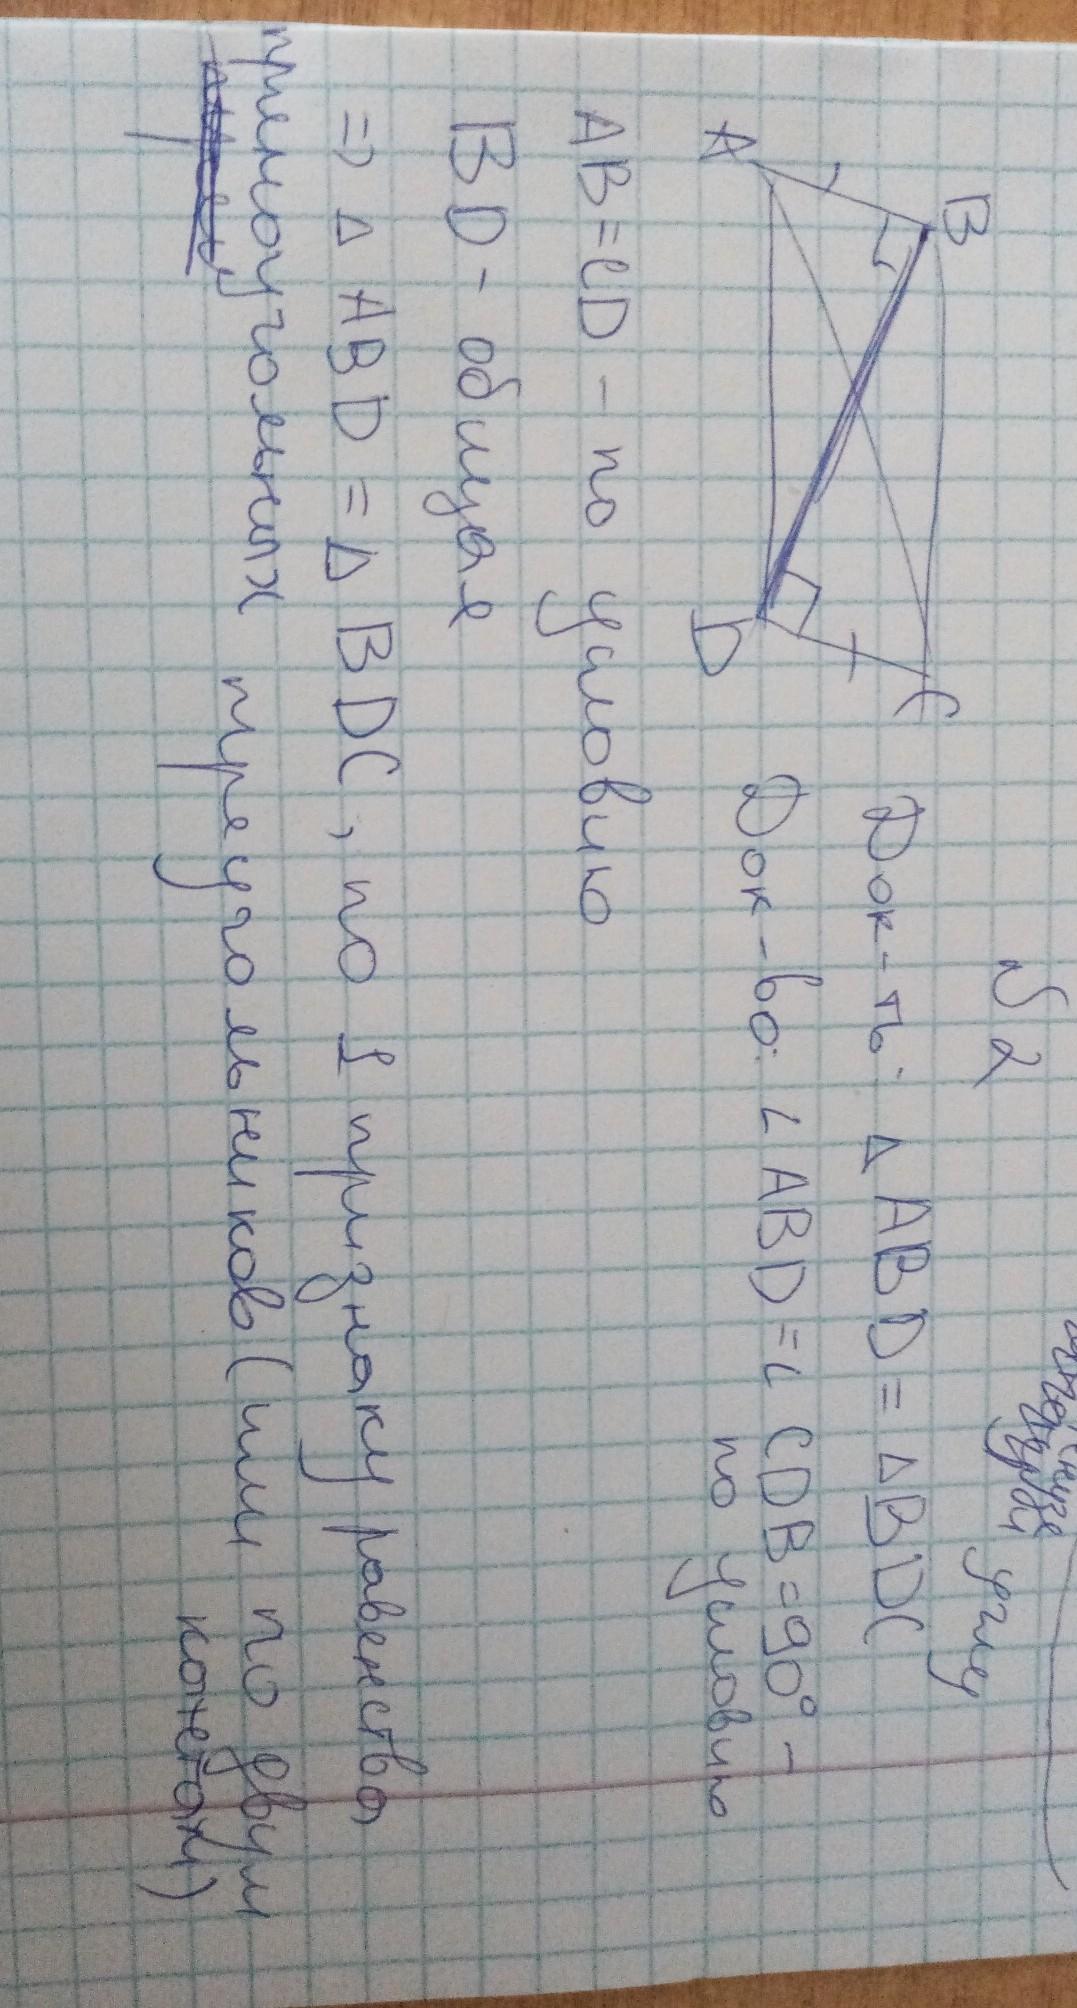 углу
№2
B
C
A
D
Док-ть: △ABD = △BDC
Док-во: ∠ABD = ∠CDB = 90° –
по условию
AB = CD – по условию
BD – общая
=> △ABD = △BDC, по 1 признаку равенства
прямоугольных треугольников (или по двум
катетам)